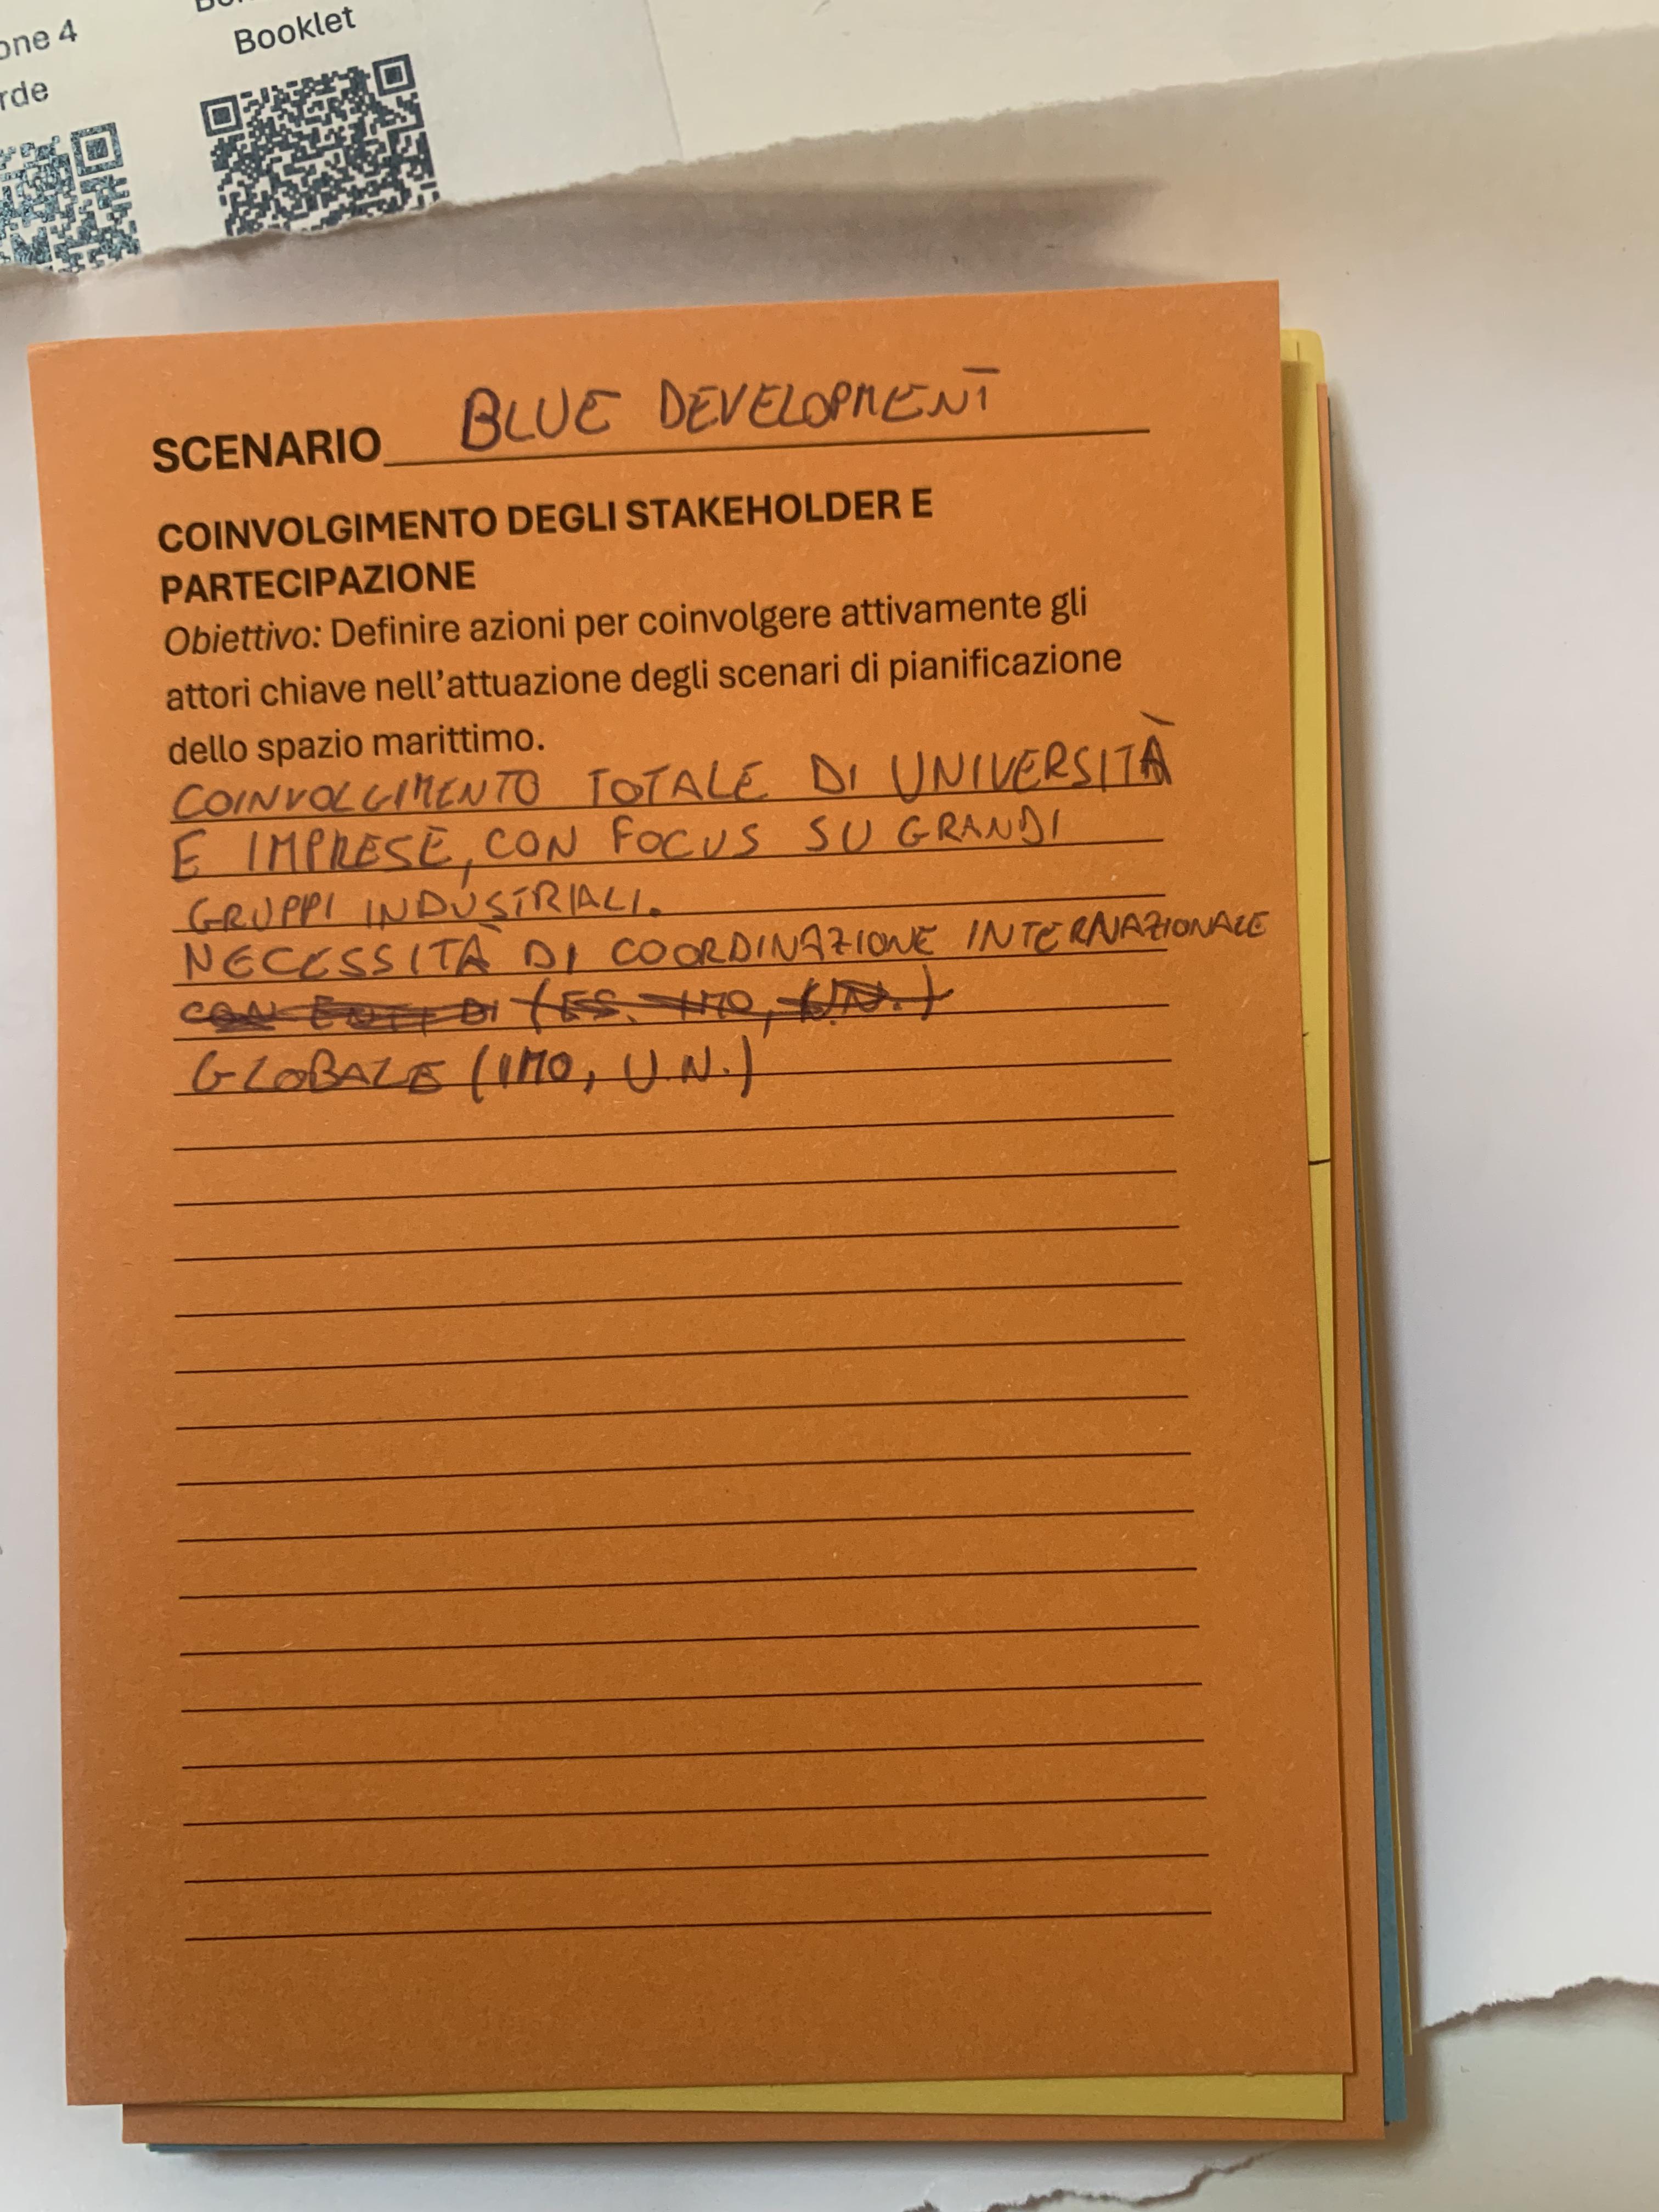 one 4
rde
Booklet
SCENARIO BLUE DEVELOPMENT
COINVOLGIMENTO DEGLI STAKEHOLDER E
PARTECIPAZIONE
Obiettivo: Definire azioni per coinvolgere attivamente gli
attori chiave nell'attuazione degli scenari di pianificazione
dello spazio marittimo.
COINVOLGIMENTO TOTALE DI UNIVERSITÀ
E IMPRESE, CON FOCUS SU GRANDI
GRUPPI INDUSTRIALI.
NECESSITÀ DI COORDINAZIONE INTERNAZIONALE
CON ENTI DI (ES. IMO, U.N.)
GLOBALE (IMO, U.N.)